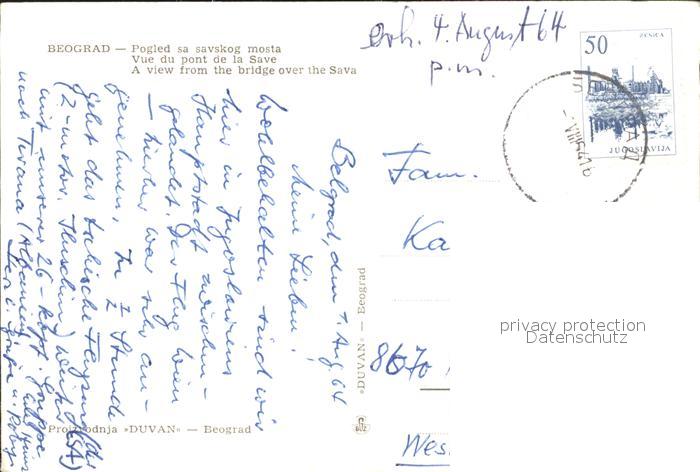 BEOGRAD — Pogled sa savskog mosta
Vue du pont de la Save
A view from the bridge over the Sava
erh. 4. August 64
p.m.
50
ZENICA
JUGOSLAVIJA
Belgrad, den 1. Aug. 64
Meine Lieben!
Wohlbehalten sind wir
hier in Jugoslawiens
Hauptstadt zwischen-
gelandet. Der Flug Wien
— hierher war sehr an-
genehm. In ½ Stunde
geht das Flugzeug
(2-motor. Iljuschin) weiter
mit unserer 26-köpf. Gruppe
nach Tirana (Albanien)
»DUVAN« — Beograd
Proizvodnja »DUVAN« — Beograd
Fam.
Ka
8670
Wes
privacy protection
Datenschutz